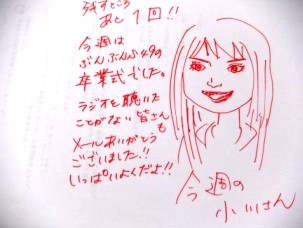 残すところ
あと1回!!
今週は
ぶんぶんぶん9の
卒業式でした。
ラジオを聴いた
ことがない皆さんも
メールありがとう
ございました!!
いっぱいよくだよ!!
今週の
小川さん